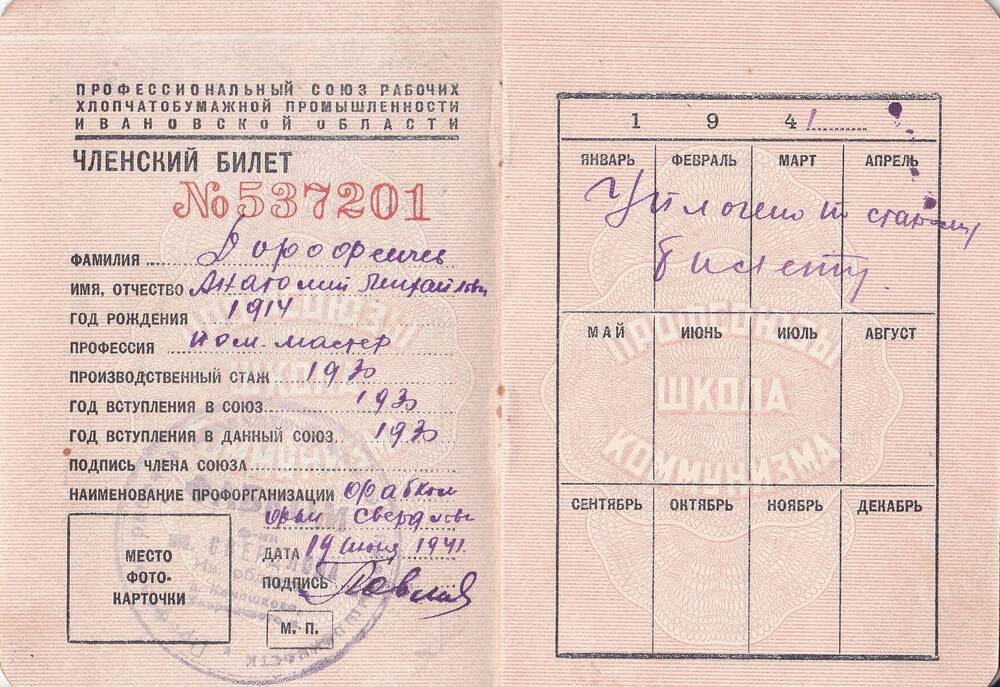 ПРОФЕССИОНАЛЬНЫЙ СОЮЗ РАБОЧИХ
ХЛОПЧАТОБУМАЖНОЙ ПРОМЫШЛЕННОСТИ
ИВАНОВСКОЙ ОБЛАСТИ
ЧЛЕНСКИЙ БИЛЕТ
№537201
ФАМИЛИЯ
ИМЯ, ОТЧЕСТВО Анатолий Михайлович
ГОД РОЖДЕНИЯ 1914
ПРОФЕССИЯ пом. мастер
ПРОИЗВОДСТВЕННЫЙ СТАЖ 1930
ГОД ВСТУПЛЕНИЯ В СОЮЗ 1930
ГОД ВСТУПЛЕНИЯ В ДАННЫЙ СОЮЗ 1930
ПОДПИСЬ ЧЛЕНА СОЮЗА
НАИМЕНОВАНИЕ ПРОФОРГАНИЗАЦИИ фабком
ф-ки Свердлова
ДАТА 19 июня 1941
ПОДПИСЬ
МЕСТО
ФОТО-
КАРТОЧКИ
М. П.
1941
ЯНВАРЬ ФЕВРАЛЬ МАРТ АПРЕЛЬ
по старому
билету
МАЙ ИЮНЬ ИЮЛЬ АВГУСТ
ПРОФСОЮЗЫ
ШКОЛА
КОММУНИЗМА
СЕНТЯБРЬ ОКТЯБРЬ НОЯБРЬ ДЕКАБРЬ